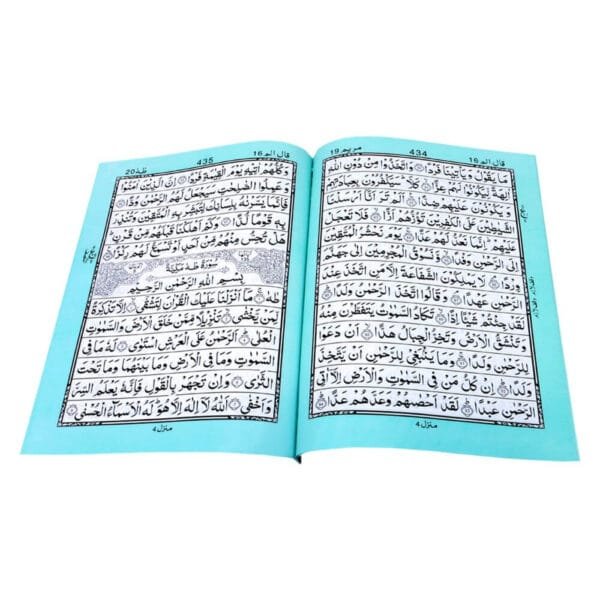 قال الم 16 434 مريم 19
مَا يَقُوْلُ وَيَاْتِيْنَا فَرْدًا ۝ وَاتَّخَذُوْا مِنْ دُوْنِ اللّٰهِ
اٰلِهَةً لِّيَكُوْنُوْا لَهُمْ عِزًّا ۝ كَلَّا سَيَكْفُرُوْنَ بِعِبَادَتِهِمْ
وَيَكُوْنُوْنَ عَلَيْهِمْ ضِدًّا ۝ اَلَمْ تَرَ اَنَّا اَرْسَلْنَا
الشَّيٰطِيْنَ عَلَى الْكٰفِرِيْنَ تَؤُزُّهُمْ اَزًّا ۝ فَلَا تَعْجَلْ
عَلَيْهِمْ اِنَّمَا نَعُدُّ لَهُمْ عَدًّا ۝ يَوْمَ نَحْشُرُ الْمُتَّقِيْنَ
اِلَى الرَّحْمٰنِ وَفْدًا ۝ وَّنَسُوْقُ الْمُجْرِمِيْنَ اِلٰى جَهَنَّمَ
وِرْدًا ۝ لَا يَمْلِكُوْنَ الشَّفَاعَةَ اِلَّا مَنِ اتَّخَذَ عِنْدَ
الرَّحْمٰنِ عَهْدًا ۝ وَقَالُوا اتَّخَذَ الرَّحْمٰنُ وَلَدًا ۝
لَقَدْ جِئْتُمْ شَيْئًا اِدًّا ۝ تَكَادُ السَّمٰوٰتُ يَتَفَطَّرْنَ مِنْهُ
وَتَنْشَقُّ الْاَرْضُ وَتَخِرُّ الْجِبَالُ هَدًّا ۝ اَنْ دَعَوْا
لِلرَّحْمٰنِ وَلَدًا ۝ وَمَا يَنْبَغِيْ لِلرَّحْمٰنِ اَنْ يَّتَّخِذَ
وَلَدًا ۝ اِنْ كُلُّ مَنْ فِى السَّمٰوٰتِ وَالْاَرْضِ اِلَّا اٰتِى
الرَّحْمٰنِ عَبْدًا ۝ لَقَدْ اَحْصٰىهُمْ وَعَدَّهُمْ عَدًّا ۝
منزل 4
قال الم 16 435 طٰهٰ 20
وَكُلُّهُمْ اٰتِيْهِ يَوْمَ الْقِيٰمَةِ فَرْدًا ۝ اِنَّ الَّذِيْنَ اٰمَنُوْا
وَعَمِلُوا الصّٰلِحٰتِ سَيَجْعَلُ لَهُمُ الرَّحْمٰنُ وُدًّا ۝
فَاِنَّمَا يَسَّرْنٰهُ بِلِسَانِكَ لِتُبَشِّرَ بِهِ الْمُتَّقِيْنَ وَتُنْذِرَ
بِهٖ قَوْمًا لُّدًّا ۝ وَكَمْ اَهْلَكْنَا قَبْلَهُمْ مِّنْ قَرْنٍ
هَلْ تُحِسُّ مِنْهُمْ مِّنْ اَحَدٍ اَوْ تَسْمَعُ لَهُمْ رِكْزًا ۝
سورة طه مكية
بِسْمِ اللّٰهِ الرَّحْمٰنِ الرَّحِيْمِ
طٰهٰ ۝ مَا اَنْزَلْنَا عَلَيْكَ الْقُرْاٰنَ لِتَشْقٰى ۝ اِلَّا تَذْكِرَةً
لِّمَنْ يَّخْشٰى ۝ تَنْزِيْلًا مِّمَّنْ خَلَقَ الْاَرْضَ وَالسَّمٰوٰتِ
الْعُلٰى ۝ اَلرَّحْمٰنُ عَلَى الْعَرْشِ اسْتَوٰى ۝ لَهٗ مَا فِى
السَّمٰوٰتِ وَمَا فِى الْاَرْضِ وَمَا بَيْنَهُمَا وَمَا تَحْتَ
الثَّرٰى ۝ وَاِنْ تَجْهَرْ بِالْقَوْلِ فَاِنَّهٗ يَعْلَمُ السِّرَّ
وَاَخْفٰى ۝ اَللّٰهُ لَا اِلٰهَ اِلَّا هُوَ لَهُ الْاَسْمَاءُ الْحُسْنٰى ۝
منزل 4